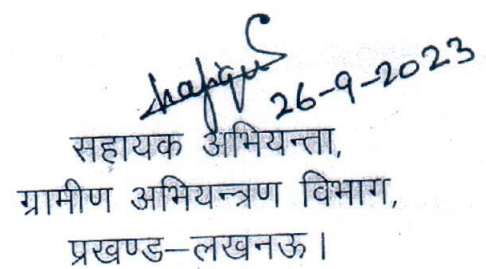 26-9-2023
सहायक अभियन्ता,
ग्रामीण अभियन्त्रण विभाग,
प्रखण्ड-लखनऊ।